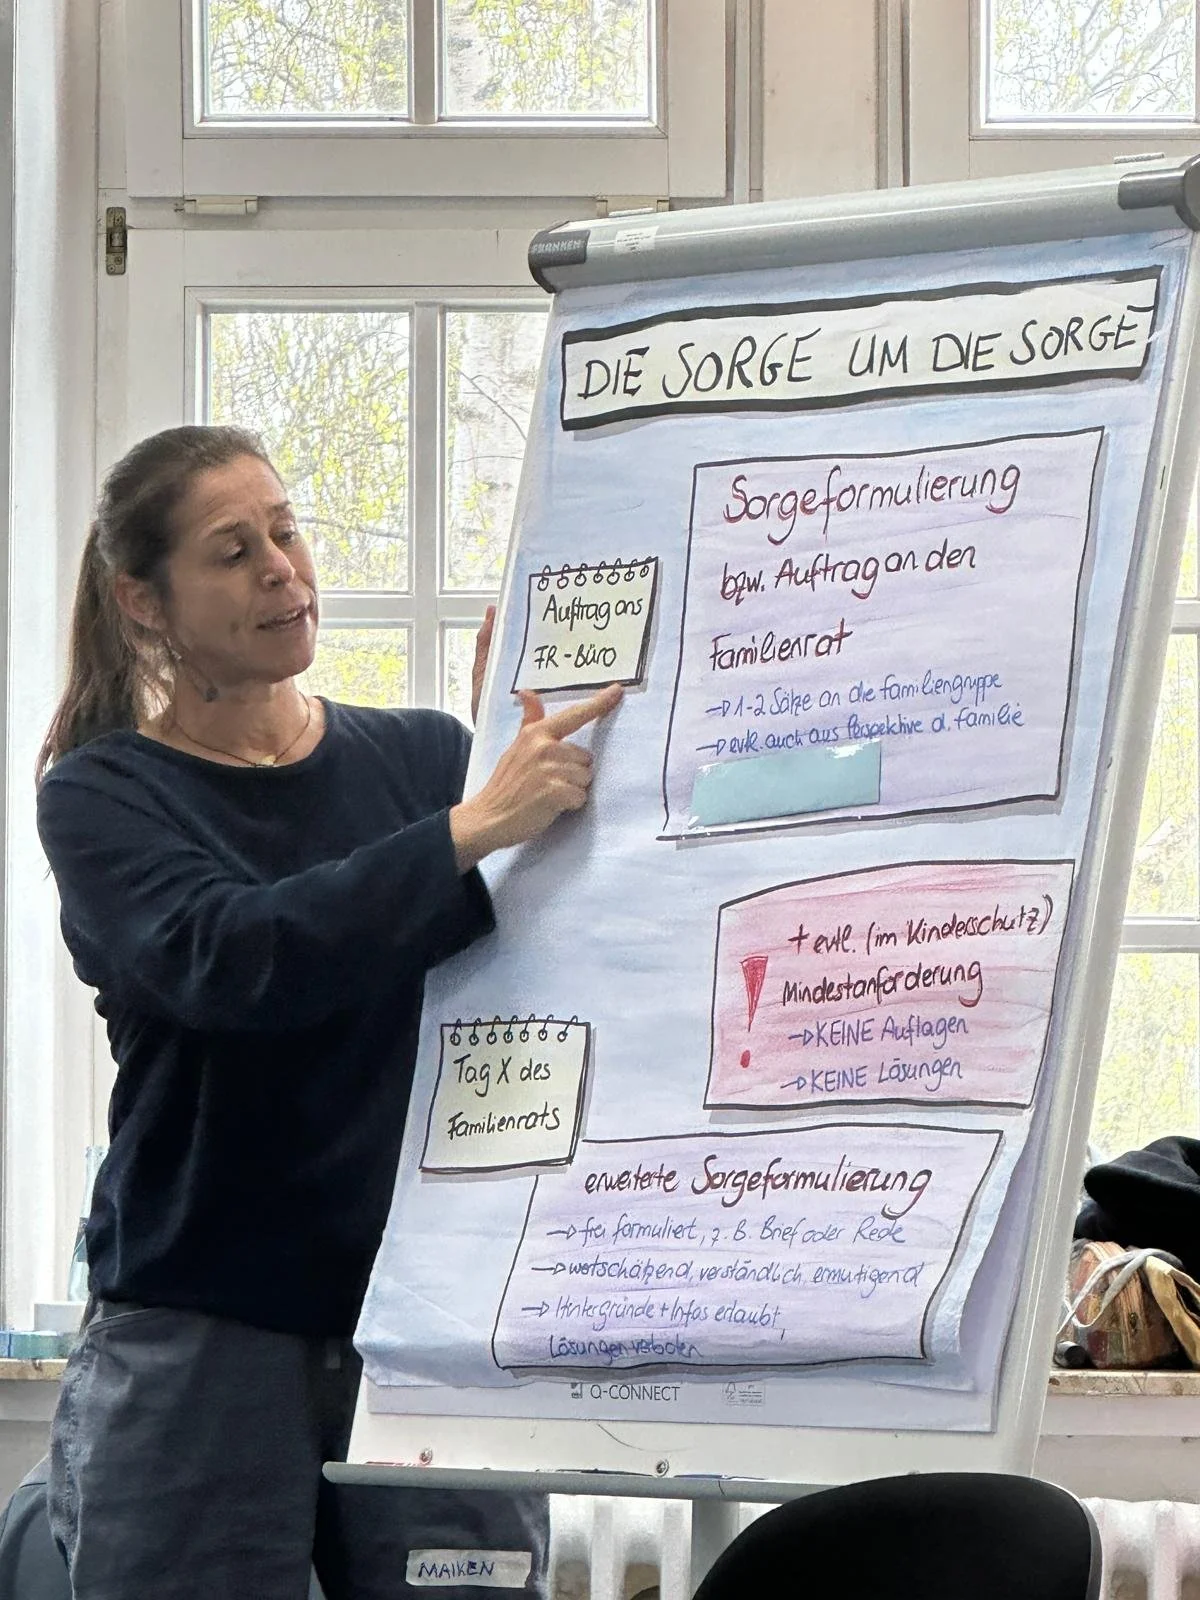 FRANKEN
DIE SORGE UM DIE SORGE
Sorgeformulierung
bzw. Auftrag an den
Familienrat
→ 1-2 Sätze an die Familiengruppe
→ evtl. auch aus Perspektive d. Familie
Auftrag ans
FR-Büro
+ evtl. (im Kinderschutz)
Mindestanforderung
→ KEINE Auflagen
→ KEINE Lösungen
!
Tag X des
Familienrats
erweiterte Sorgeformulierung
→ frei formuliert, z. B. Brief oder Rede
→ wertschätzend, verständlich, ermutigend
→ Hintergründe + Infos erlaubt,
Lösungen verboten
Q-CONNECT
MAIKEN